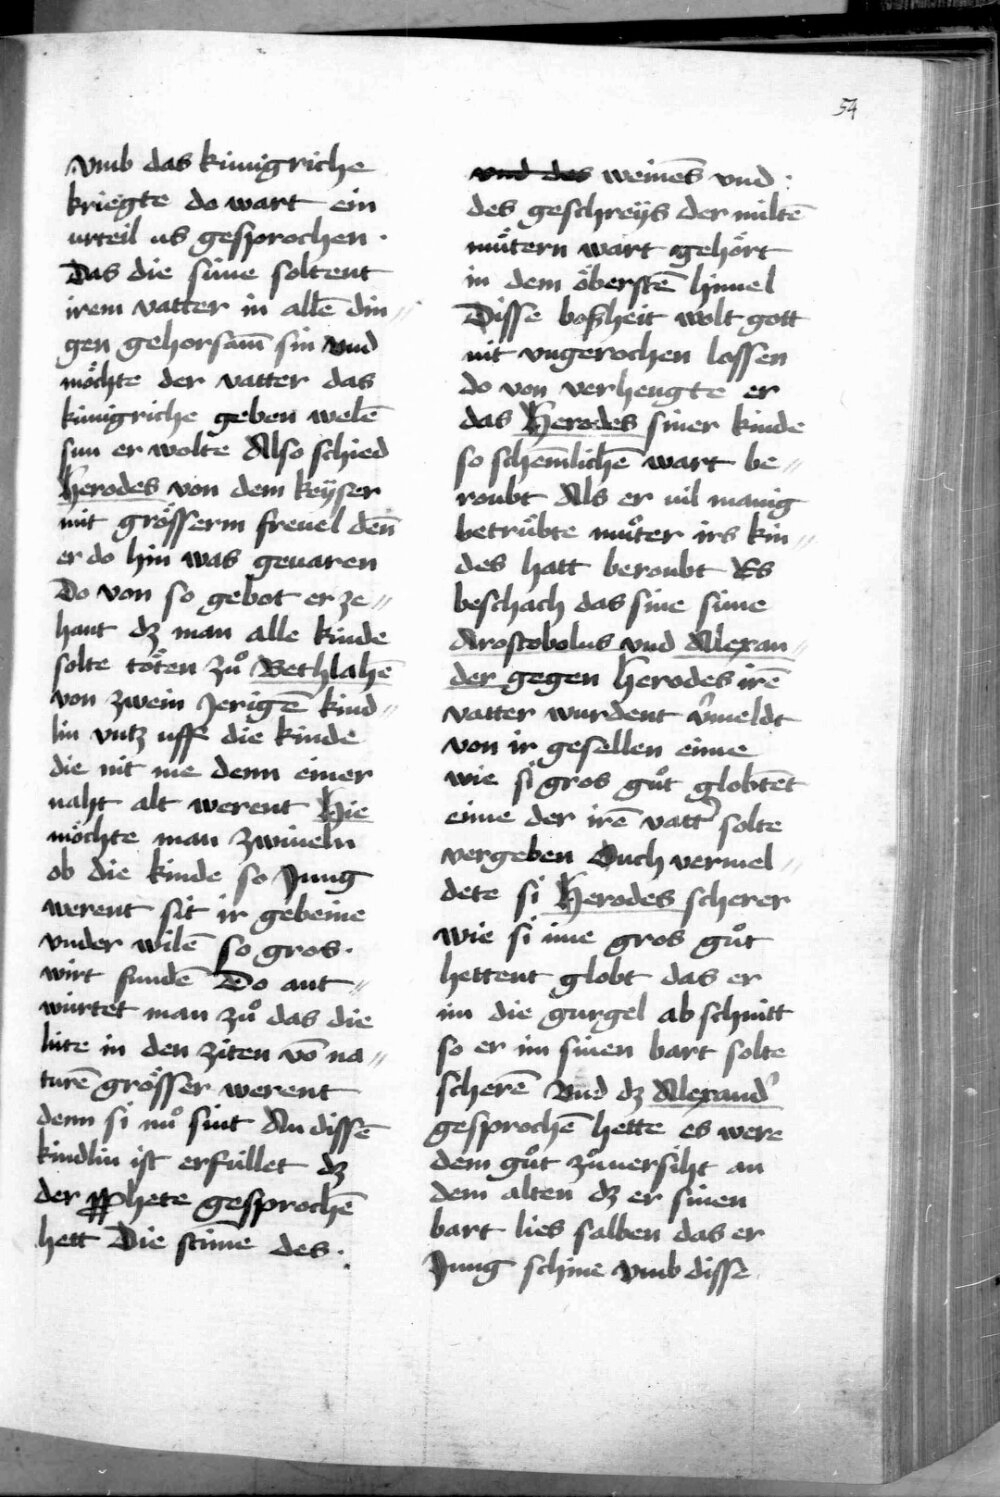 54
vmb das kúnigriche
kriegte do wart ein
urteil us gesprochen ·
Das die súne soltent
irem vatter in allē din〃
gen gehorsam̄ sin vnd
möchte der vatter das
kúnigriche geben welē
sun er wolte Also schied
Herodes von dem keÿser
mit grösserm freuel den̄
er do hin was geuaren
Do von so gebot er ze〃
hant dz man alle kinde
solte töten zů Bethlahē
von zwein Jerigē kind〃
lin vntz uffe die kinde
die nit me denn einer
naht alt werent Hie
möchte man zwiueln
ob die kinde so Jung
werent sit ir gebeine
vnder wilē so gros ·
wirt fundē Do ant〃
wúrtet man zů das die
lúte in den ziten vō na〃
turē grösser werent
denn si nů sint An dissē
kindlin ist erfúllet dz
der ꝓphete gesprochē
hett Die stim̄e des ·
vnd des weinēs vnd ·
des geschreÿs der miltē
mǘtern wart gehört
in dem öberstē himel
Disse bosheit wolt gott
nit vngerochen lossen
do von verhengte er
das Herodes siner kinde
so schemlichē wart be〃
roubt Als er vil manig
betrübte můter irs kin〃
des hatt beroubt Es
beschach das sine súne
Arostobolus vnd Alexan〃
der gegen Herodes irē
vatter wurdent v̓meldt
von ir gesellen eime
wie si gros gůt globtēt
eime der irē vatt̓ solte
vergeben Ouch vermel〃
dete si Herodes scherer
wie si ime gros gůt
hettent globt das er
im die gurgel ab schnitt
so er im sinen bart solte
scherē Vnd dz Alexand̓
gesprochē hette es were
dem gůt zůuersiht an
dem alten dz er sinen
bart lies salben das er
Jung schine vmb disse